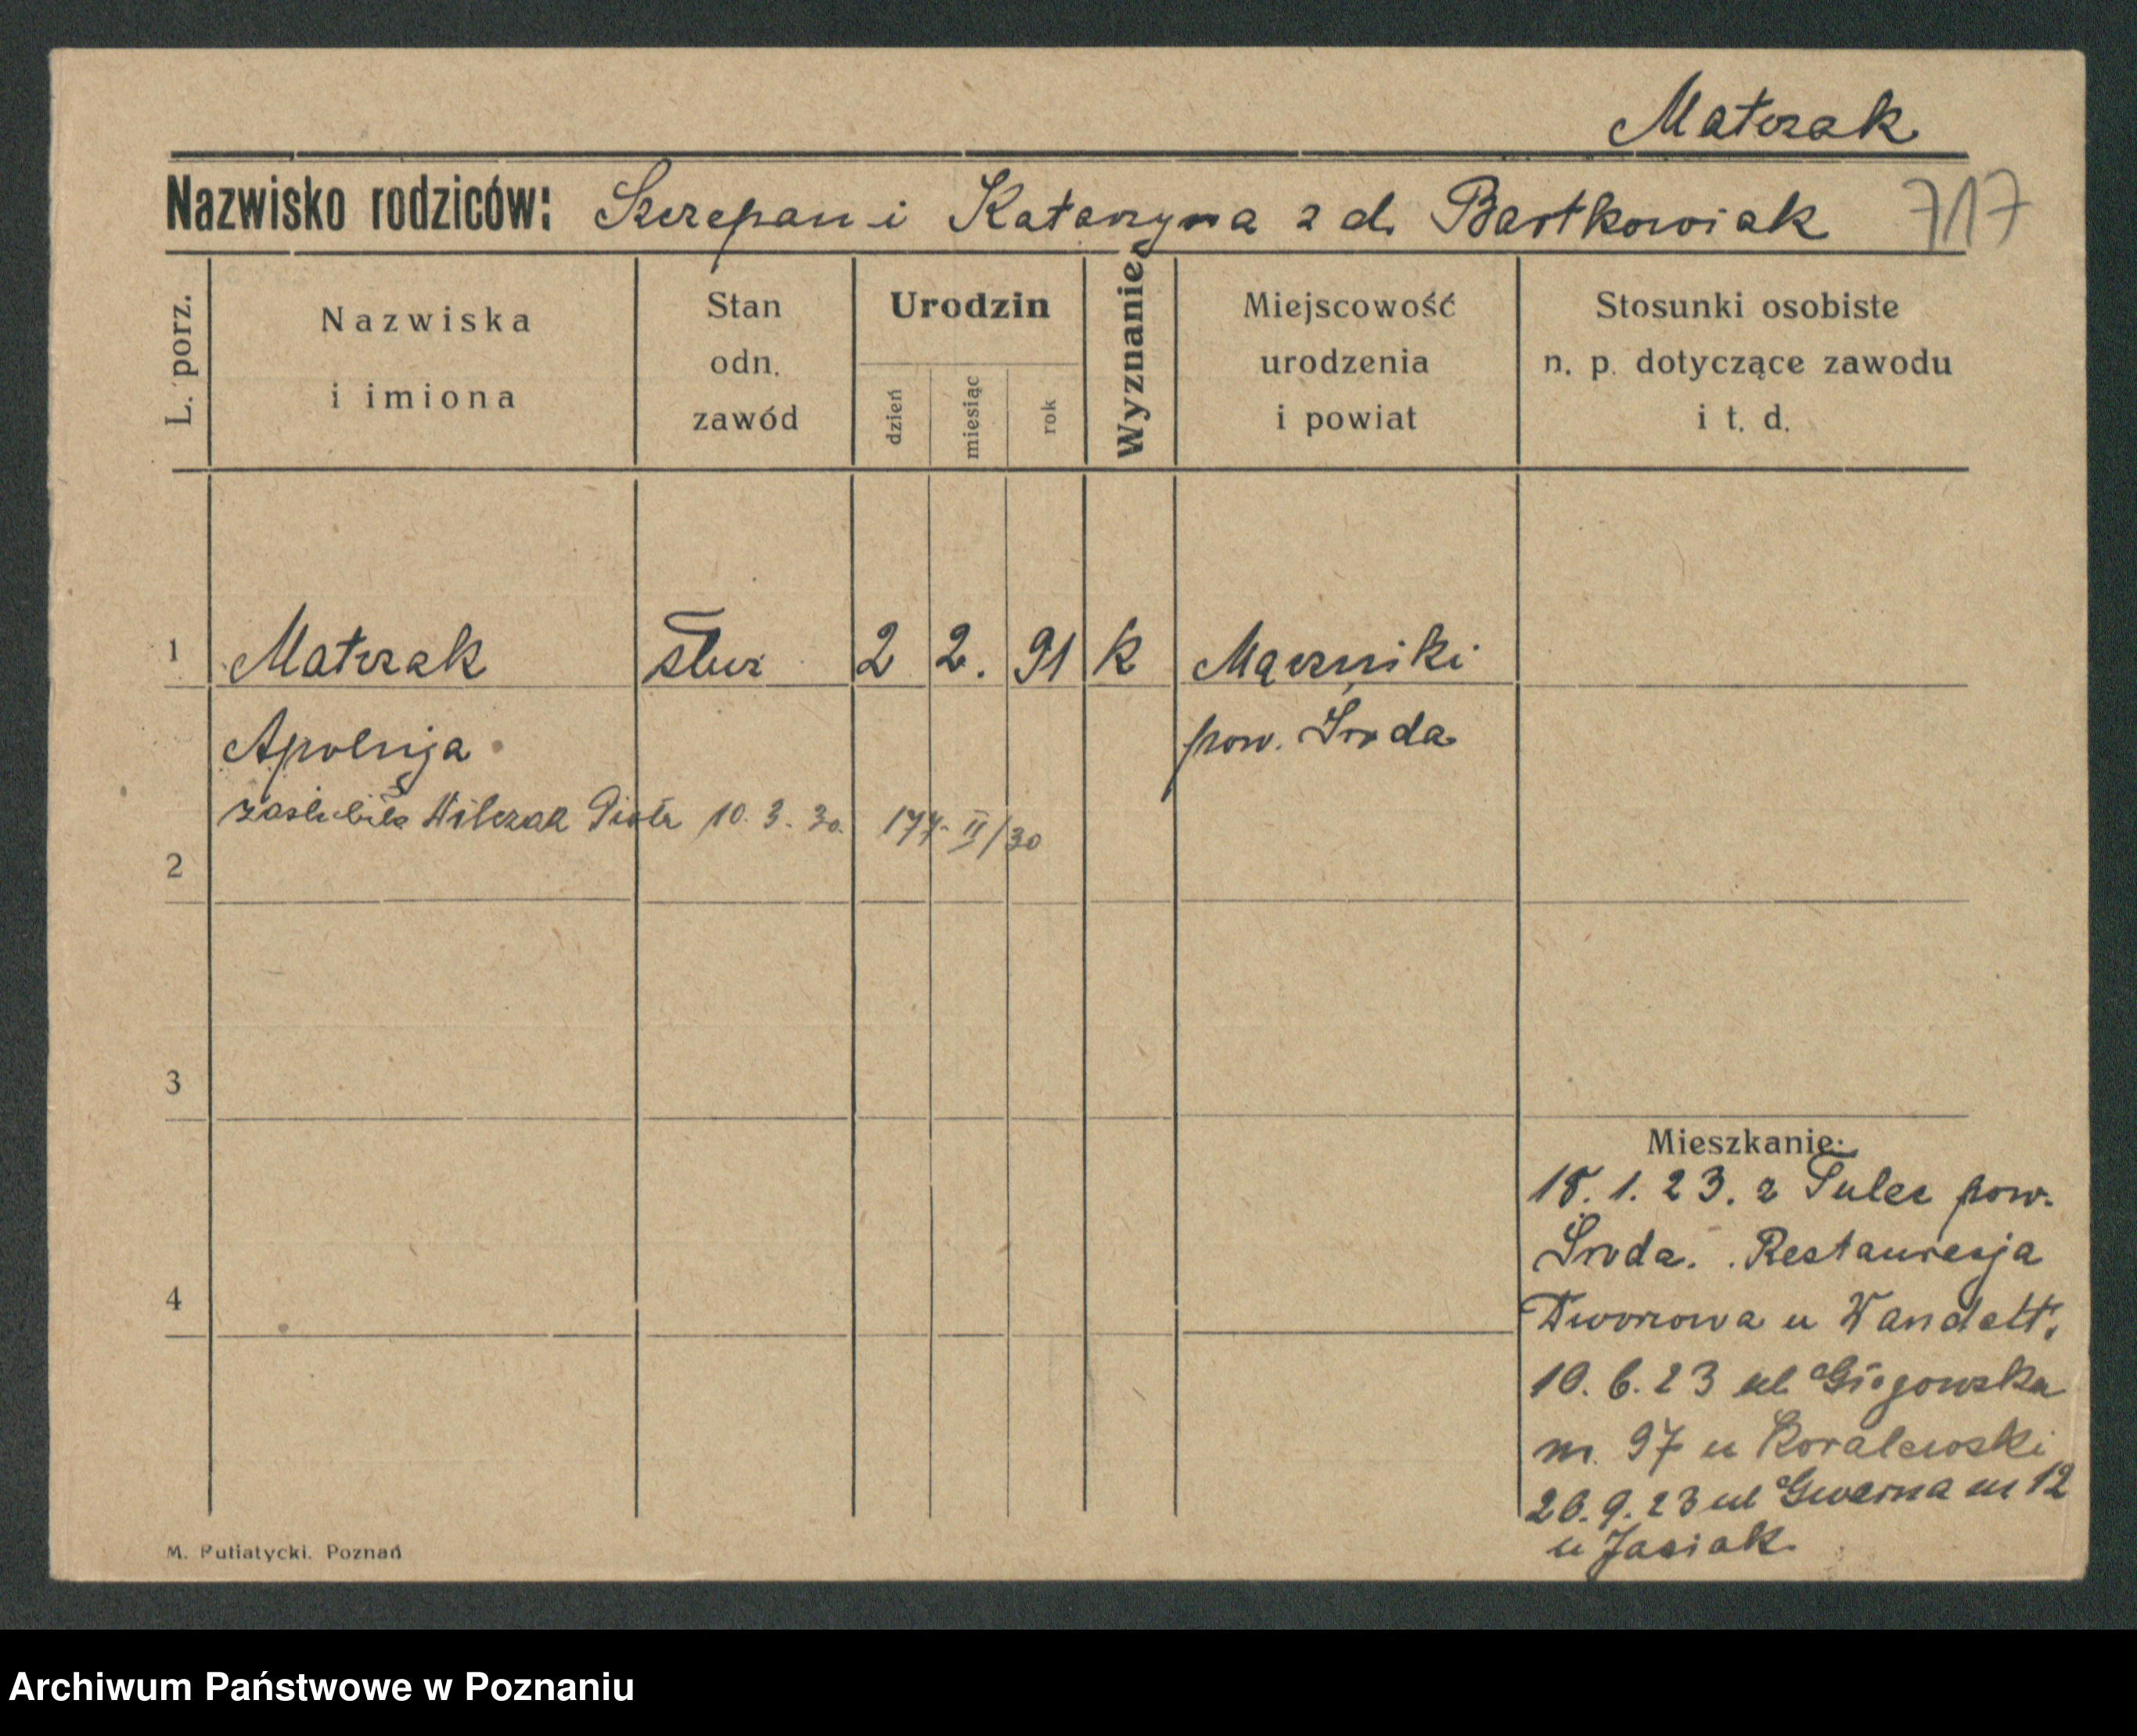 Matczak
Nazwisko rodziców: Szczepan i Katarzyna z d. Bartkowiak 717
L. porz.
Nazwiska
i imiona
Stan
odn.
zawód
Urodzin
dzień
miesiąc
rok
Wyznanie
Miejscowość
urodzenia
i powiat
Stosunki osobiste
n. p. dotyczące zawodu
i t. d.
1 Matczak służ 2 2. 91 k Mączniki
Apolnija pow. Środa
zaślubiła Wilczak Piotr 10. 3. 30. 177. II/30
2
3
Mieszkanie:
18. 1. 23. z Tulec pow.
Środa. Restauracja
4
Dworcowa u Wandelt.
10. 6. 23 ul Głogowska
m. 97 u Koralewski
26. 9. 23 ul Gwarna m 12
u Jasiak.
M. Putiatycki. Poznań
Archiwum Państwowe w Poznaniu